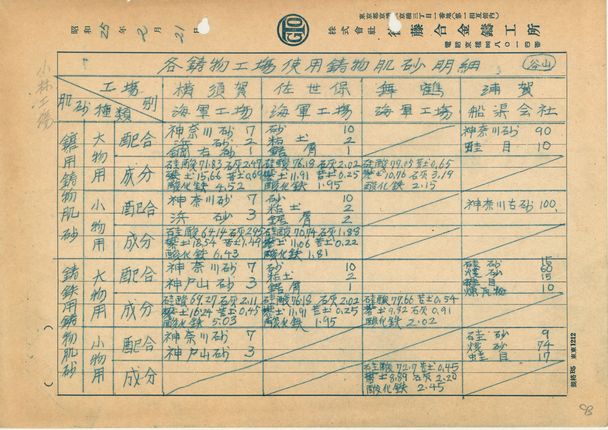 昭和25年元月21日
株式會社 後藤合金鑄工所
小林工場
各鋳物工場使用鋳物肌砂明細
谷山
工場別
肌砂種類
横須賀
海軍工場
佐世保
海軍工場
舞鶴
海軍工場
浦賀
船渠会社
鋳鋼用鋳物肌砂
大物用
配合
神奈川砂 7
浜砂 2
1
砂 10
粘土 2
鋸屑 2
神奈川砂 90
蛙目 10
成分
硅酸71.83 石灰2.47
礬土15.66 苦土0.69
酸化鉄 4.52
硅酸76.18 石灰2.02
礬土11.91 苦土0.25
酸化鉄 1.95
硅酸79.15 苦土0.65
礬土10.76 石灰3.19
酸化鉄 2.15
小物用
配合
神奈川砂 7
浜砂 3
砂 10
粘土 2
鋸屑 2
神奈川右砂 100
成分
硅酸64.14 石灰2.95
礬土18.54 苦土1.49
酸化鉄 6.43
硅酸70.74 石灰1.88
礬土11.06 苦土0.22
酸化鉄 1.81
鋳鉄用鋳物肌砂
大物用
配合
神奈川砂 7
神戸山砂 3
砂 10
粘土 2
鋸屑 1
硅砂 15
燒砂 60
蛙目 10
成分
硅酸69.27 石灰2.11
礬土16.24 苦土0.45
酸化鉄 5.03
硅酸76.18 石灰2.02
礬土11.91 苦土0.25
酸化鉄 1.95
硅酸79.66 苦土0.54
礬土9.92 石灰0.91
酸化鉄 2.02
小物用
配合
神奈川砂 7
神戸山砂 3
硅砂 9
燒砂 74
蛙目 17
成分
硅酸72.7 苦土0.45
礬土8.89 石灰2.20
酸化鉄 2.45